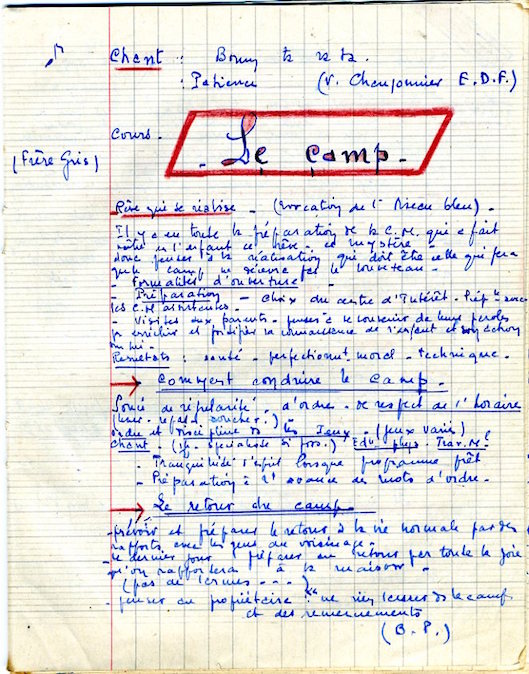 Chant : Bonny
: Patience (v. Chansonnier E.D.F.)
cours.
- Le camp -
(Frère Gris)
Rêve qui se réalise - (évocation de l'oiseau bleu) -
Il y a eu toute la préparation de la C.M. qui a fait
naître en l'enfant ce rêve - ce mystère
donc penser à la réalisation qui doit être celle qui fera
que le camp ne décevra pas le louveteau -
- Formalités d'ouverture -
- Préparation - choix du centre d'Intérêt - avec
les C.M. assistantes -
- Visites aux parents - penser à se souvenir de leurs paroles
enrichir et fortifier la connaissance de l'enfant et son action
sur lui -
Résultats : santé - perfectionnt moral - technique -
→ comment conduire le camp -
Souci de régularité - d'ordre - de respect de l'horaire
- repas - )
ordre et discipline ds les Jeux - (jeux variés)
Chant - (si poss.) Edu. phys. Trav. M.
- Tranquillité d'esprit lorsque programme prêt
- Préparation à l'avance des mots d'ordre -
→ Le retour du camp -
- prévoir et préparer le retour à la vie normale par des
rapports avec les gens du voisinage -
- le dernier jour préparer au retour par toute la joie
qu'on rapportera à la maison -
(pas de larmes - - - )
- penser au propriétaire : "ne rien laisser ds le camp
et des remerciements
(B.P.)